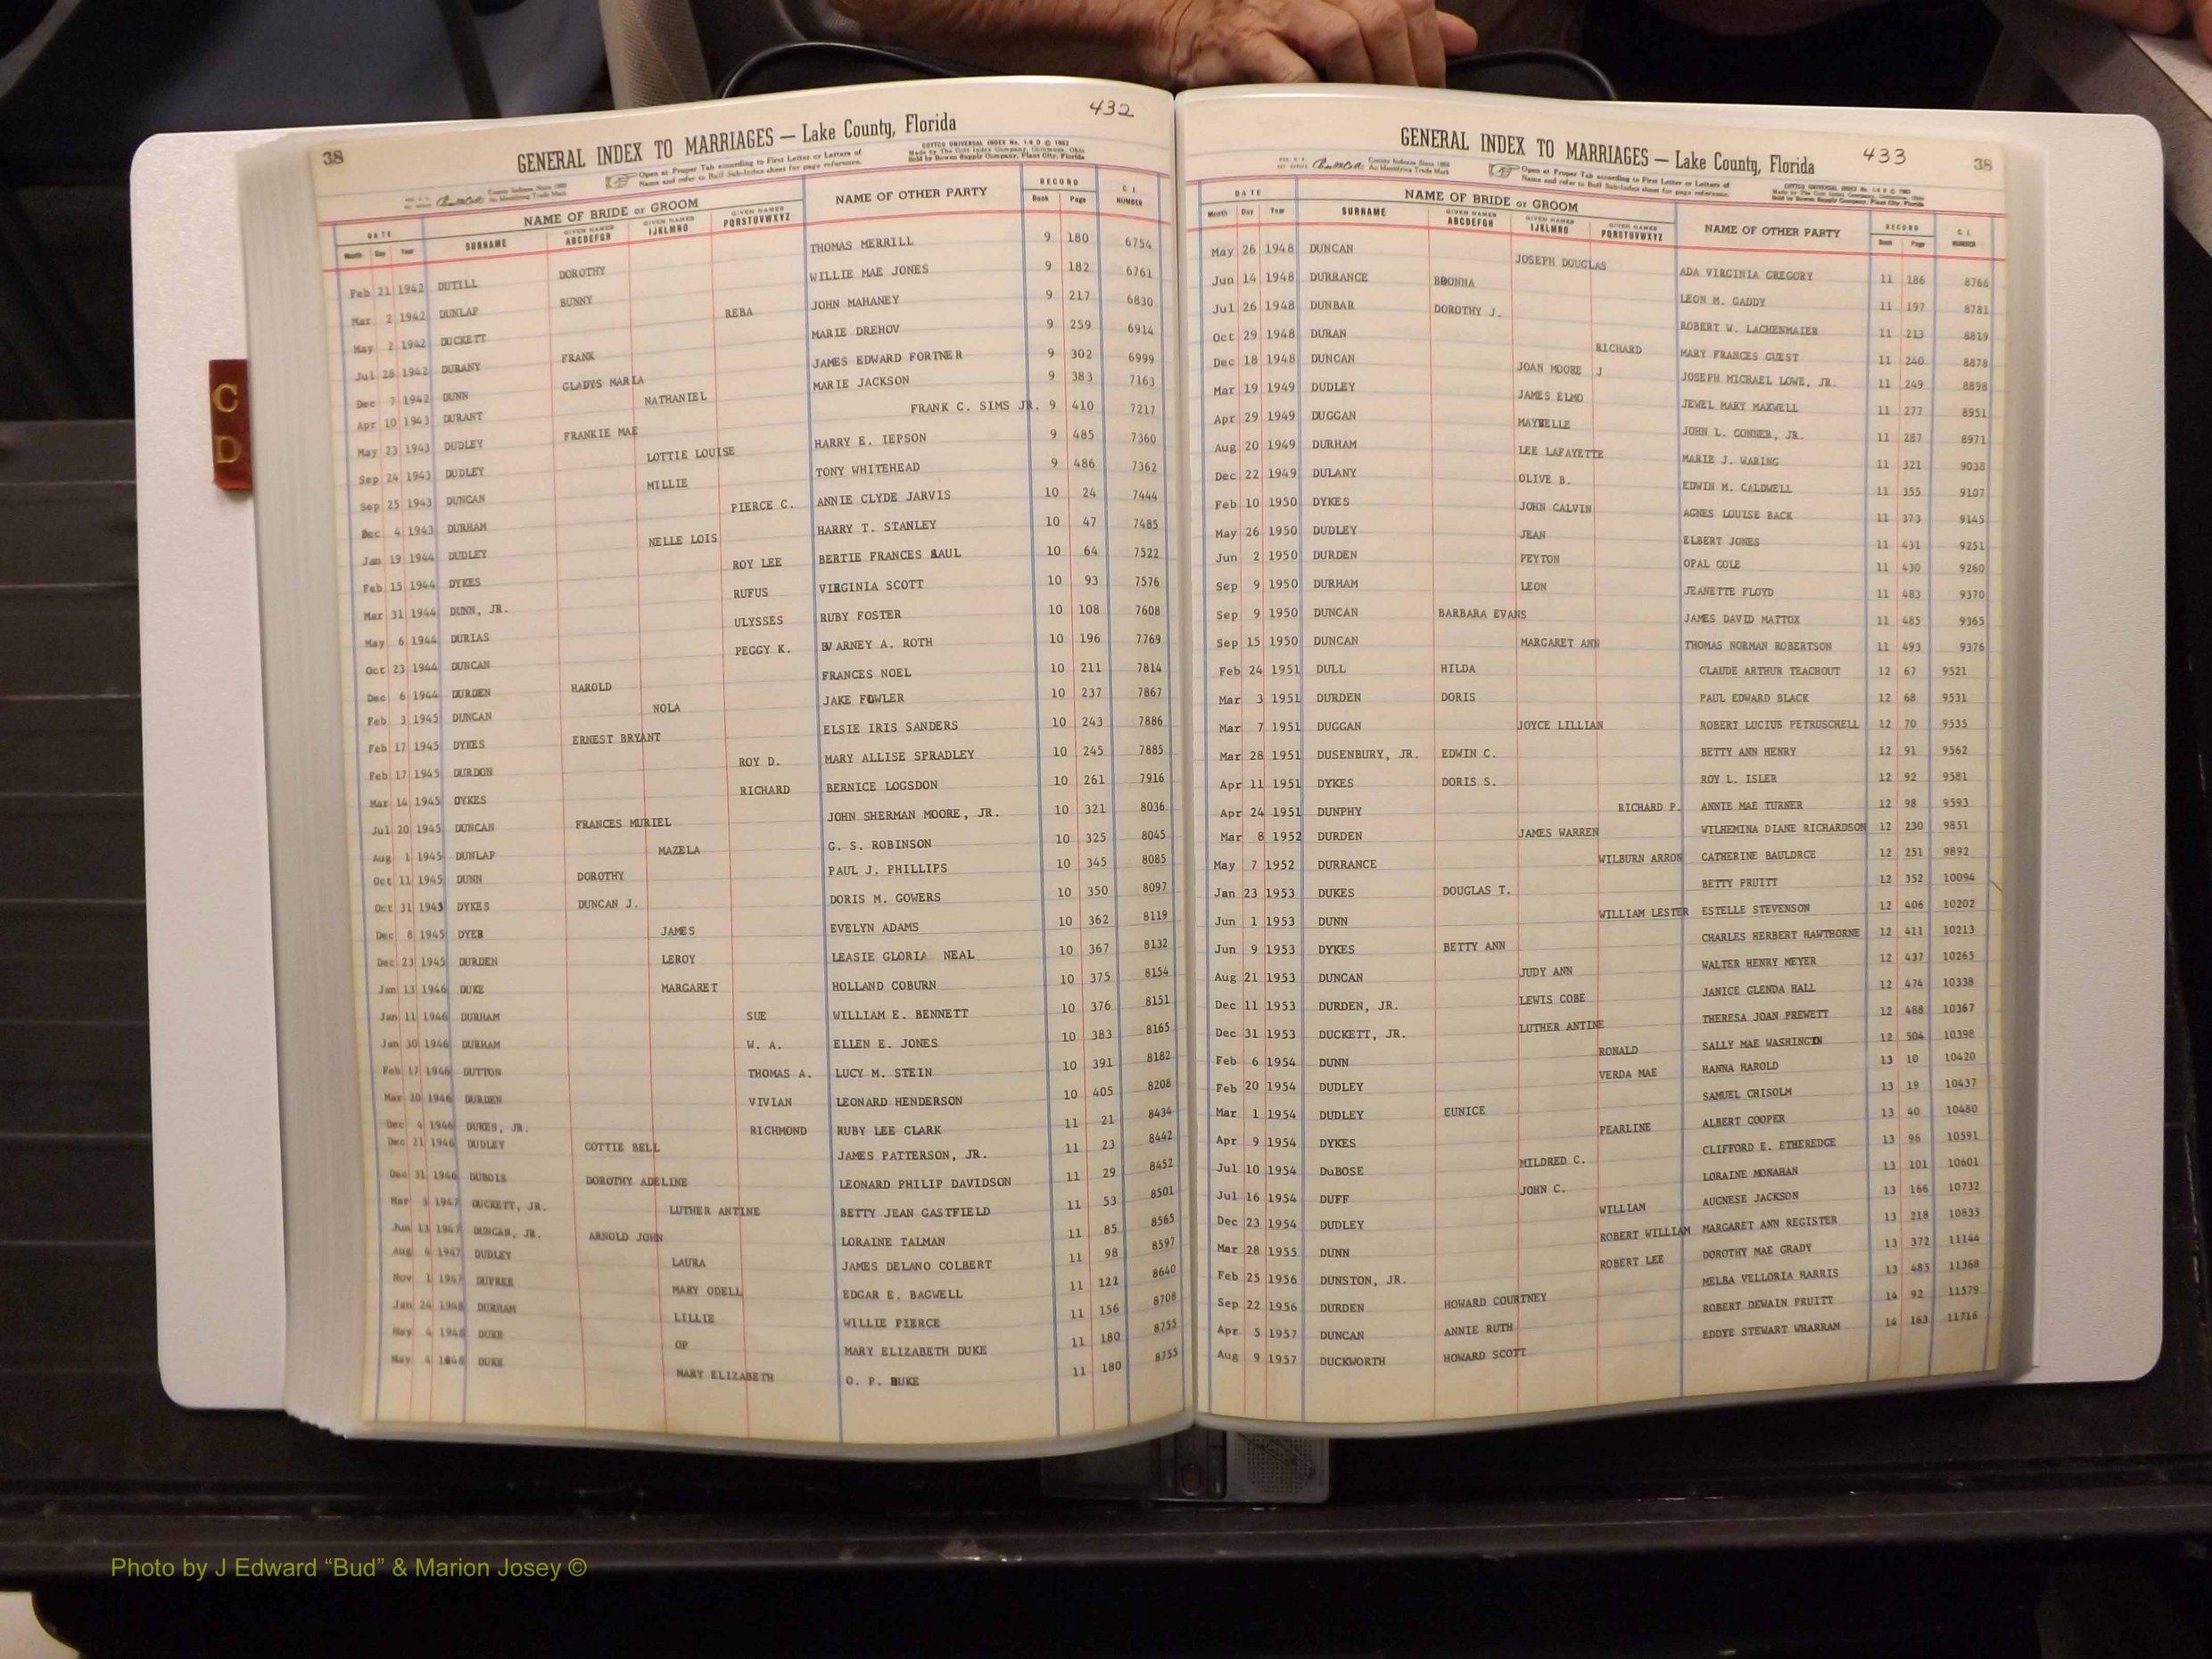 432
38
GENERAL INDEX TO MARRIAGES — Lake County, Florida
COTTCO UNIVERSAL INDEX
Made by The Cott Index Company, Columbus, Ohio
Sold by Bowen Supply Company, Plant City, Florida
County Indexes Since 1888
An Identifying Trade Mark
Open at Proper Tab according to First Letter or Letters of
Name and refer to Buff Sub-Index sheet for page reference.
DATE NAME OF BRIDE or GROOM NAME OF OTHER PARTY RECORD C. I. NUMBER
Month Day Year SURNAME GIVEN NAMES ABCDEFGH GIVEN NAMES IJKLMNO GIVEN NAMES PQRSTUVWXYZ Book Page
Feb 21 1942 DUTILL DOROTHY THOMAS MERRILL 9 180 6754
Mar 2 1942 DUNLAP BUNNY WILLIE MAE JONES 9 182 6761
May 2 1942 DUCKETT REBA JOHN MAHANEY 9 217 6830
Jul 28 1942 DURANY FRANK MARIE DREHOV 9 259 6914
Dec 7 1942 DUNN GLADYS MARIA JAMES EDWARD FORTNER 9 302 6999
Apr 10 1943 DURANT NATHANIEL MARIE JACKSON 9 383 7163
May 23 1943 DUDLEY FRANKIE MAE FRANK C. SIMS JR. 9 410 7217
Sep 24 1943 DUDLEY LOTTIE LOUISE HARRY E. IEPSON 9 485 7360
Sep 25 1943 DUNCAN MILLIE TONY WHITEHEAD 9 486 7362
Dec 4 1943 DURHAM PIERCE C. ANNIE CLYDE JARVIS 10 24 7444
Jan 19 1944 DUDLEY NELLE LOIS HARRY T. STANLEY 10 47 7485
Feb 15 1944 DYKES ROY LEE BERTIE FRANCES 10 64 7522
Mar 31 1944 DUNN, JR. RUFUS VIRGINIA SCOTT 10 93 7576
May 6 1944 DURIAS ULYSSES RUBY FOSTER 10 108 7608
Oct 23 1944 DUNCAN PEGGY K. A. ROTH 10 196 7769
Dec 6 1944 DURDEN HAROLD FRANCES NOEL 10 211 7814
Feb 3 1945 DUNCAN NOLA JAKE FOWLER 10 237 7867
Feb 17 1945 DYKES ERNEST BRYANT ELSIE IRIS SANDERS 10 243 7886
Feb 17 1945 DURDON ROY D. MARY ALLISE SPRADLEY 10 245 7885
Mar 14 1945 DYKES RICHARD BERNICE LOGSDON 10 261 7916
Jul 20 1945 DUNCAN FRANCES MURIEL JOHN SHERMAN MOORE, JR. 10 321 8036
Aug 1 1945 DUNLAP MAZELA G. S. ROBINSON 10 325 8045
Oct 11 1945 DUNN DOROTHY PAUL J. PHILLIPS 10 345 8085
Oct 31 1945 DYKES DUNCAN J. DORIS M. GOWERS 10 350 8097
Dec 8 1945 DYER JAMES EVELYN ADAMS 10 362 8119
Dec 23 1945 DURDEN LEROY LEASIE GLORIA NEAL 10 367 8132
Jan 13 1946 DUKE MARGARET HOLLAND COBURN 10 375 8154
Jan 11 1946 DURHAM SUE WILLIAM E. BENNETT 10 376 8151
Jan 30 1946 DURHAM W. A. ELLEN E. JONES 10 383 8165
Feb 17 1946 DUTTON THOMAS A. LUCY M. STEIN 10 391 8182
Mar 20 1946 DURDEN VIVIAN LEONARD HENDERSON 10 405 8208
Dec 4 1946 DUKES, JR. RICHMOND RUBY LEE CLARK 11 21 8434
Dec 21 1946 DUDLEY COTTIE BELL JAMES PATTERSON, JR. 11 23 8442
Dec 31 1946 DUBOIS DOROTHY ADELINE LEONARD PHILIP DAVIDSON 11 29 8452
Mar 3 1947 DUCKETT, JR. LUTHER ANTINE BETTY JEAN GASTFIELD 11 53 8501
Jun 13 1947 DUNCAN, JR. ARNOLD JOHN LORAINE TALMAN 11 85 8565
Aug 4 1947 DUDLEY LAURA JAMES DELANO COLBERT 11 98 8597
Nov 1 1947 DUPREE MARY ODELL EDGAR E. BAGWELL 11 121 8640
Jan 24 1948 DURHAM LILLIE WILLIE PIERCE 11 156 8708
May 4 1948 DUKE OP MARY ELIZABETH DUKE 11 180 8755
May 4 1848 DUKE MARY ELIZABETH O. P. DUKE 11 180 8755
433
38
GENERAL INDEX TO MARRIAGES — Lake County, Florida
County Indexes Since 1888
An Identifying Trade Mark
Open at Proper Tab according to First Letter or Letters of
Name and refer to Buff Sub-Index sheet for page reference.
COTTCO UNIVERSAL INDEX
Made by The Cott Index Company, Columbus, Ohio
Sold by Bowen Supply Company, Plant City, Florida
DATE NAME OF BRIDE or GROOM NAME OF OTHER PARTY RECORD C. I. NUMBER
Month Day Year SURNAME GIVEN NAMES ABCDEFGH GIVEN NAMES IJKLMNO GIVEN NAMES PQRSTUVWXYZ Book Page
May 26 1948 DUNCAN JOSEPH DOUGLAS ADA VIRGINIA GREGORY 11 186 8766
Jun 14 1948 DURRANCE BBONNA LEON M. GADDY 11 197 8781
Jul 26 1948 DUNBAR DOROTHY J. ROBERT W. LACHENMAIER 11 213 8819
Oct 29 1948 DURAN RICHARD MARY FRANCES GUEST 11 240 8878
Dec 18 1948 DUNCAN JOAN MOORE J JOSEPH MICHAEL LOWE, JR. 11 249 8898
Mar 19 1949 DUDLEY JAMES ELMO JEWEL MARY MAXWELL 11 277 8951
Apr 29 1949 DUGGAN MAYBELLE JOHN L. CONNER, JR. 11 287 8971
Aug 20 1949 DURHAM LEE LAFAYETTE MARIE J. WARING 11 321 9038
Dec 22 1949 DULANY OLIVE B. EDWIN M. CALDWELL 11 355 9107
Feb 10 1950 DYKES JOHN CALVIN AGNES LOUISE BACK 11 373 9145
May 26 1950 DUDLEY JEAN ELBERT JONES 11 431 9251
Jun 2 1950 DURDEN PEYTON OPAL COLE 11 430 9260
Sep 9 1950 DURHAM LEON JEANETTE FLOYD 11 483 9370
Sep 9 1950 DUNCAN BARBARA EVANS JAMES DAVID MATTOX 11 485 9365
Sep 15 1950 DUNCAN MARGARET ANN THOMAS NORMAN ROBERTSON 11 493 9376
Feb 24 1951 DULL HILDA CLAUDE ARTHUR TEACHOUT 12 67 9521
Mar 3 1951 DURDEN DORIS PAUL EDWARD BLACK 12 68 9531
Mar 7 1951 DUGGAN JOYCE LILLIAN ROBERT LUCIUS PETRUSCHELL 12 70 9535
Mar 28 1951 DUSENBURY, JR. EDWIN C. BETTY ANN HENRY 12 91 9562
Apr 11 1951 DYKES DORIS S. ROY L. ISLER 12 92 9581
Apr 24 1951 DUNPHY RICHARD P. ANNIE MAE TURNER 12 98 9593
Mar 8 1952 DURDEN JAMES WARREN WILHEMINA DIANE RICHARDSON 12 230 9851
May 7 1952 DURRANCE WILBURN ARRON CATHERINE BAULDRCE 12 251 9892
Jan 23 1953 DUKES DOUGLAS T. BETTY PRUITT 12 352 10094
Jun 1 1953 DUNN WILLIAM LESTER ESTELLE STEVENSON 12 406 10202
Jun 9 1953 DYKES BETTY ANN CHARLES HERBERT HAWTHORNE 12 411 10213
Aug 21 1953 DUNCAN JUDY ANN WALTER HENRY MEYER 12 437 10265
Dec 11 1953 DURDEN, JR. LEWIS COBE JANICE GLENDA HALL 12 474 10338
Dec 31 1953 DUCKETT, JR. LUTHER ANTINE THERESA JOAN PREWETT 12 488 10367
Feb 6 1954 DUNN RONALD SALLY MAE WASHINGTN 12 504 10398
Feb 20 1954 DUDLEY VERDA MAE HANNA HAROLD 13 10 10420
Mar 1 1954 DUDLEY EUNICE SAMUEL CHISOLM 13 19 10437
Apr 9 1954 DYKES PEARLINE ALBERT COOPER 13 40 10480
Jul 10 1954 DuBOSE MILDRED C. CLIFFORD E. ETHEREDGE 13 96 10591
Jul 16 1954 DUFF JOHN C. LORAINE MONAHAN 13 101 10601
Dec 23 1954 DUDLEY WILLIAM AUGNESE JACKSON 13 166 10732
Mar 28 1955 DUNN ROBERT WILLIAM MARGARET ANN REGISTER 13 218 10835
Feb 25 1956 DUNSTON, JR. ROBERT LEE DOROTHY MAE GRADY 13 372 11144
Sep 22 1956 DURDEN HOWARD COURTNEY MELBA VELLORIA HARRIS 13 485 11368
Apr 5 1957 DUNCAN ANNIE RUTH ROBERT DEWAIN PRUITT 14 92 11579
Aug 9 1957 DUCKWORTH HOWARD SCOTT EDDYE STEWART WHARRAM 14 163 11716
C
D
Photo by J Edward “Bud” & Marion Josey ©